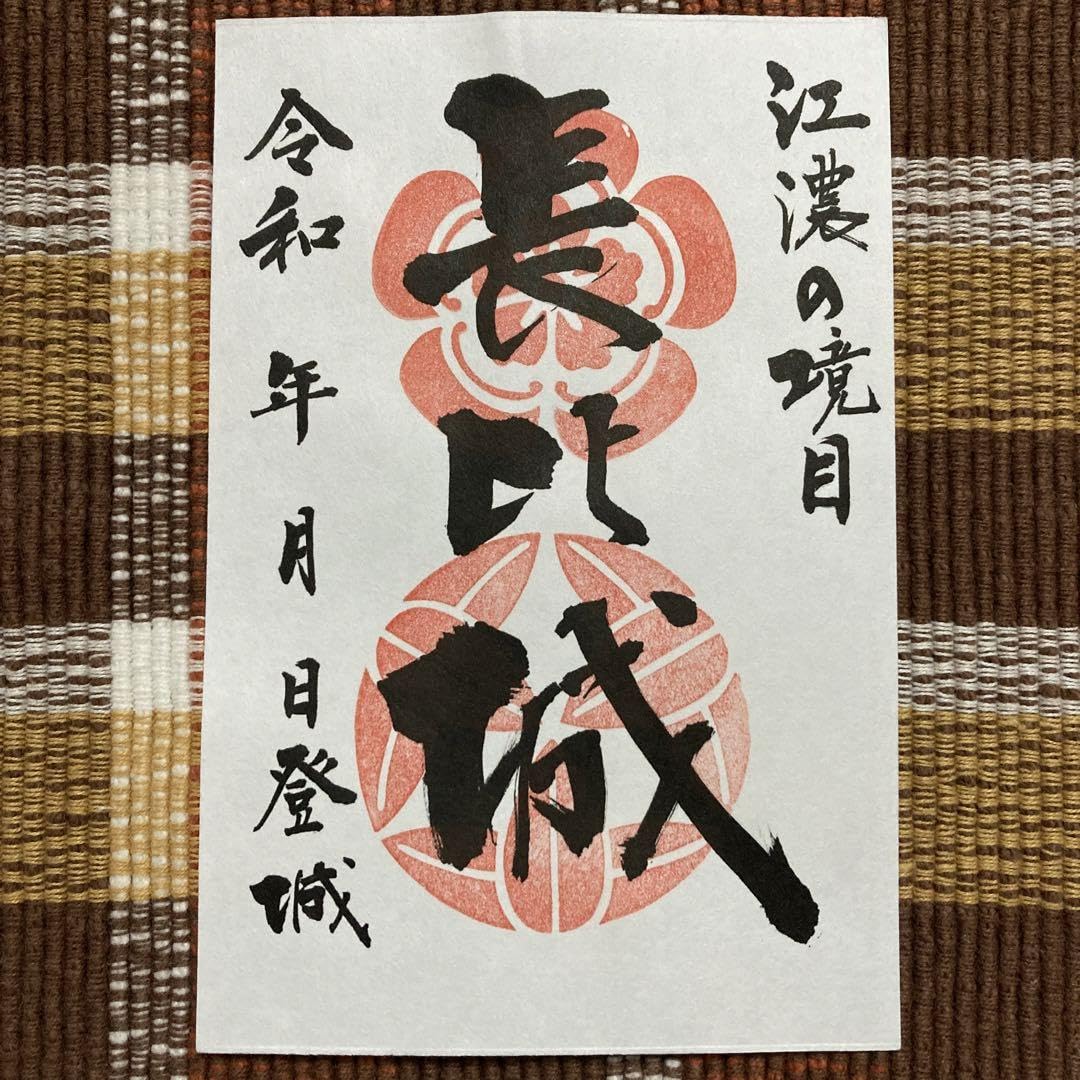 江濃の境目
長比城
令和 年 月 日登城